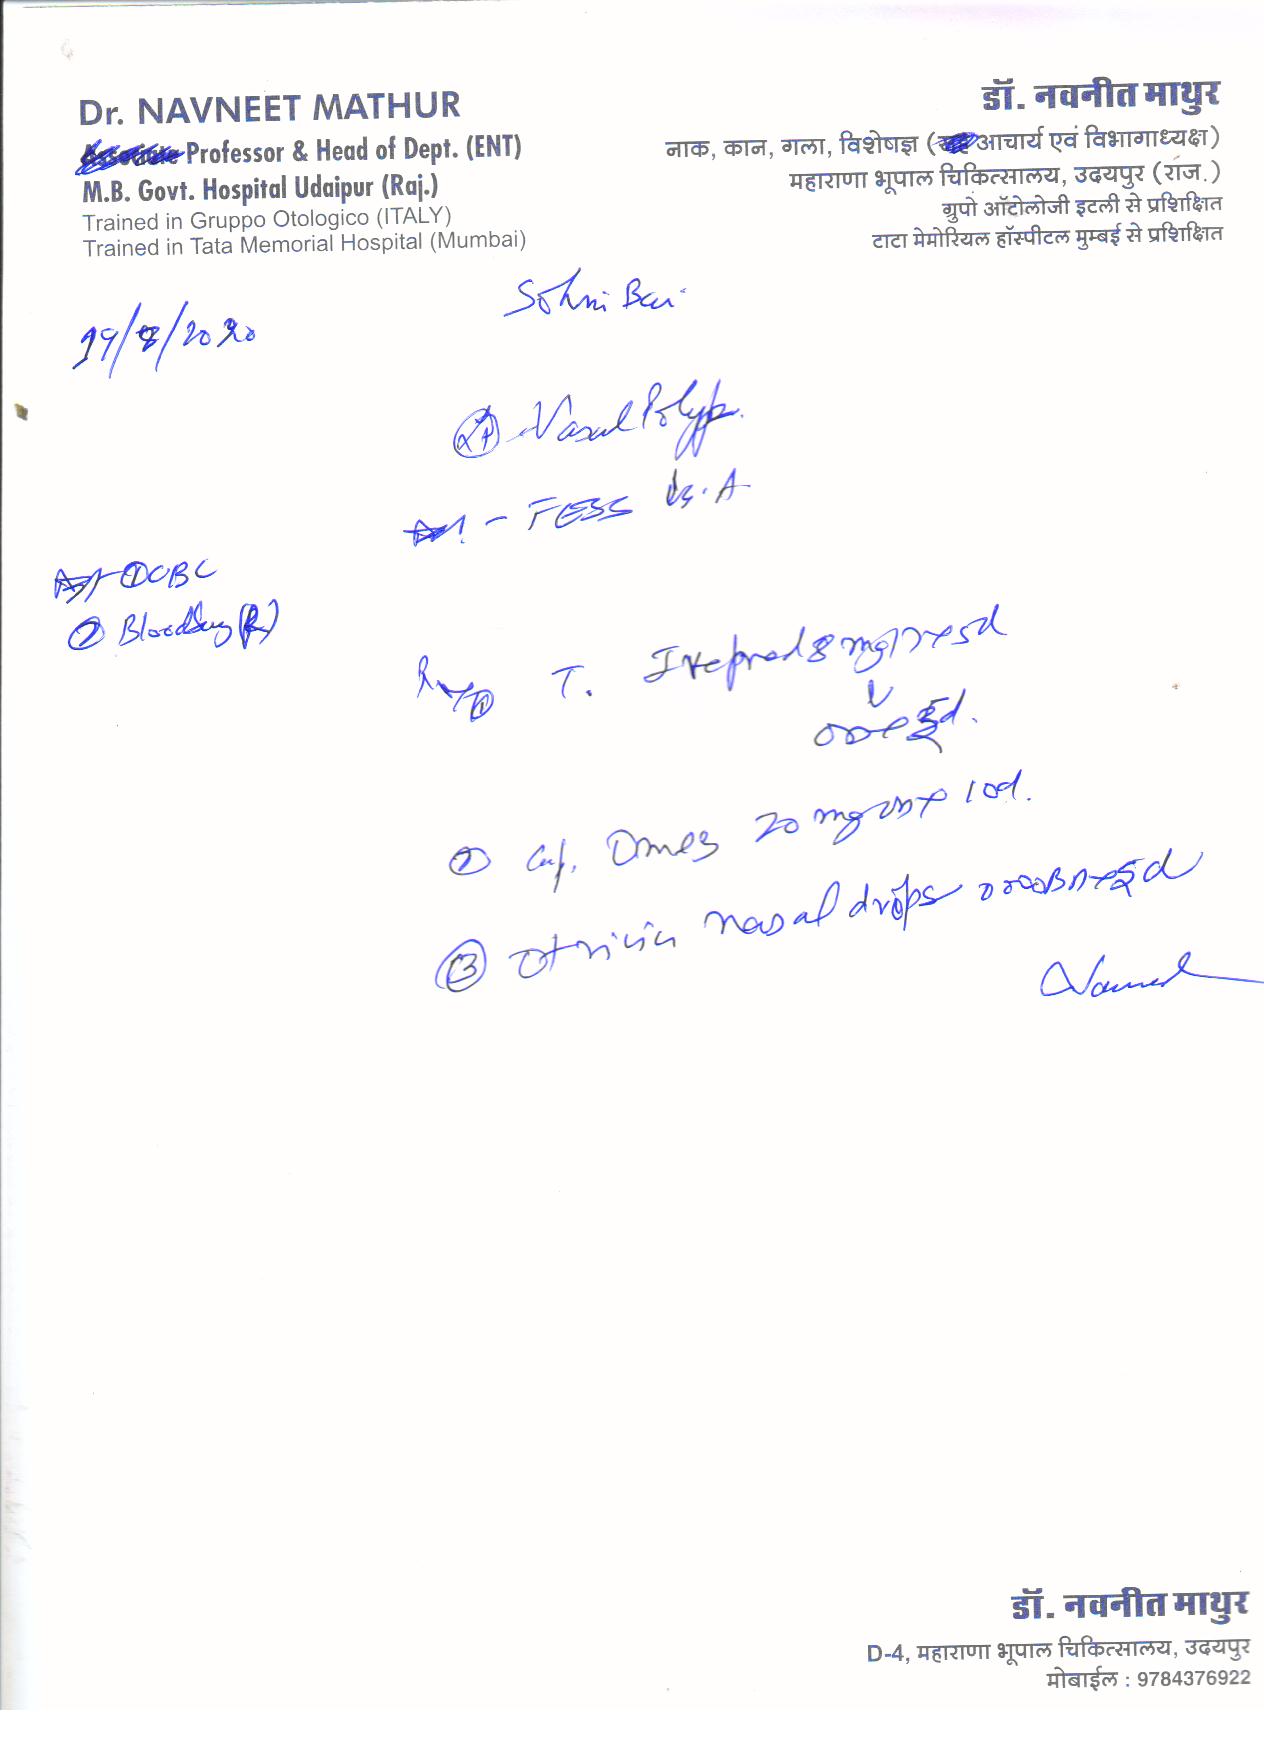 Dr. NAVNEET MATHUR
Professor & Head of Dept. (ENT)
M.B. Govt. Hospital Udaipur (Raj.)
Trained in Gruppo Otologico (ITALY)
Trained in Tata Memorial Hospital (Mumbai)
डॉ. नवनीत माथुर
नाक, कान, गला, विशेषज्ञ (आचार्य एवं विभागाध्यक्ष)
महाराणा भूपाल चिकित्सालय, उदयपुर (राज.)
ग्रुपो ऑटोलोजी इटली से प्रशिक्षित
टाटा मेमोरियल हॉस्पीटल मुम्बई से प्रशिक्षित
Sohni Bai
19/8/2020
Nasal Polyp.
- FESS
① CBC
② Blood Sug (R)
T. 8 mg 5d
5d.
② Cap. Omez 20 mg 10d.
③ Otrivin nasal drops 5d
डॉ. नवनीत माथुर
D-4, महाराणा भूपाल चिकित्सालय, उदयपुर
मोबाईल : 9784376922